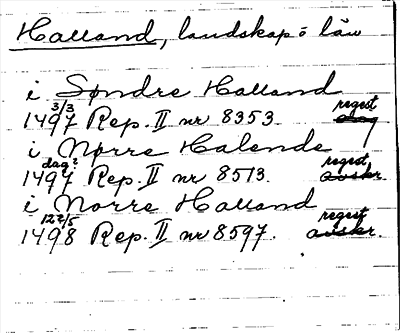 Halland, landskap o län
i Søndre Halland
3/3 regest
1497 Rep. II nr 8353. dag
i Nørre Halende
dag? regest
1497 Rep. II nr 8513. avskr.
i Norre Halland
12/5 regest
1498 Rep. II nr 8597. avskr.